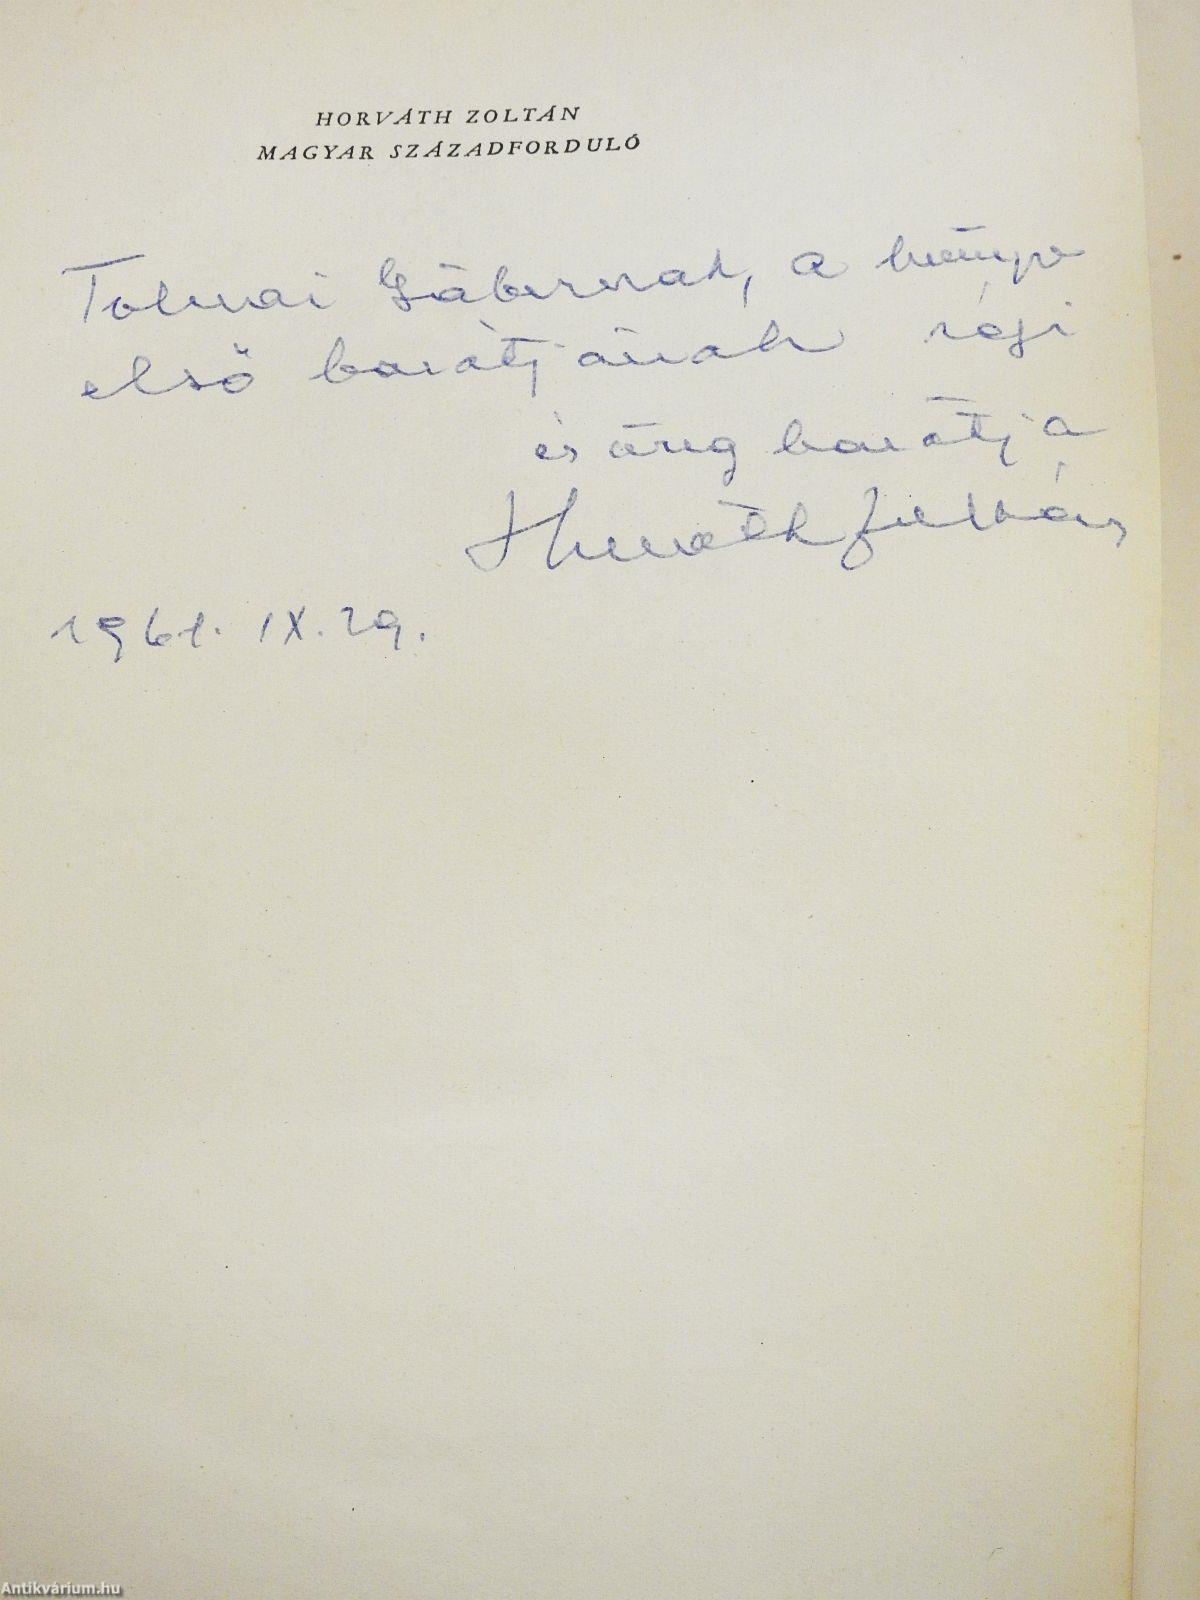 HORVÁTH ZOLTÁN
MAGYAR SZÁZADFORDULÓ
Tolnai Gábornak, a könyv
első barátjának régi
és öreg barátja
Horváth Zoltán
1961. IX. 29.
Antikvárium.hu